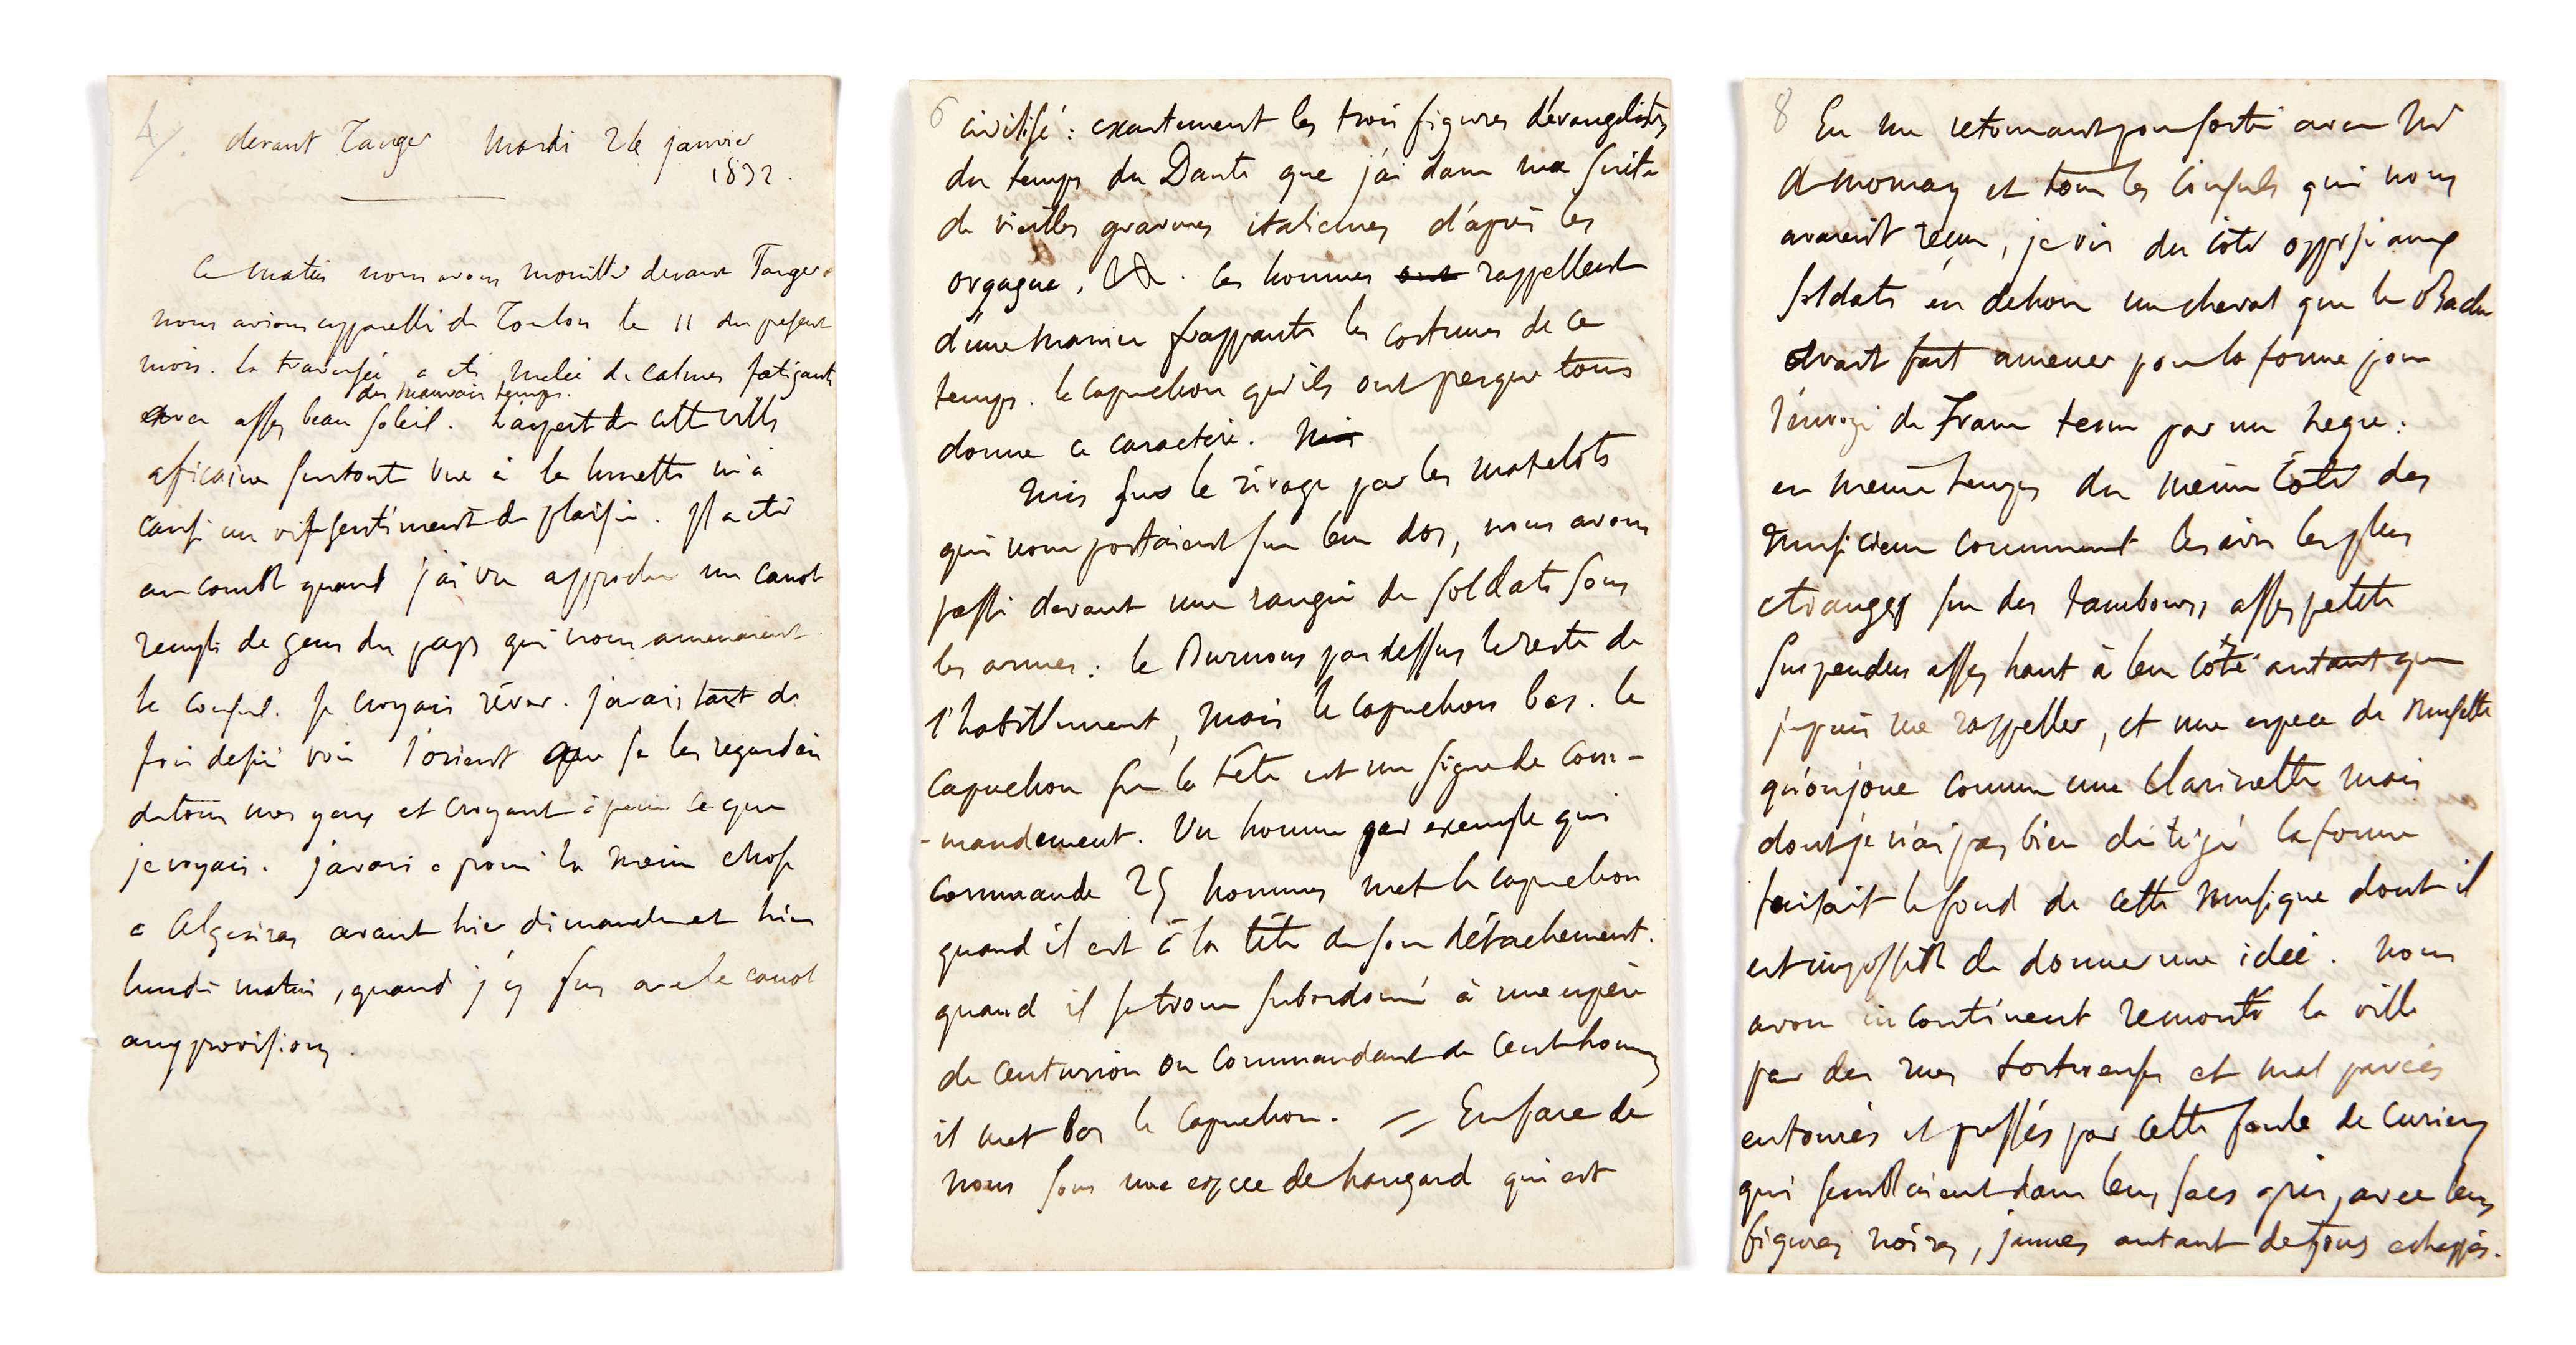 4/. devant Tanger mardi 24 janvier
1832.
Ce matin nous avons mouillé devant Tanger.
nous avions appareillé de Toulon le 11 du présent
mois. la traversée a été mêlée de calmes fatigants
des mauvais temps.
avec assez beau soleil. L'aspect de cette ville
africaine surtout vue à la lunette m'a
causé un vif sentiment de plaisir. Il a été
au comble quand j'ai vu approcher un canot
rempli de gens du pays qui nous amenaient
le consul. Je croyais rêver. j'avais tant de
fois desiré voir l'orient que je les regardais
de tous mes yeux et croyant à peine ce que
je voyais. j'avais eprouvé la même chose
a Algesiras avant hier dimanche et hier
lundi matin, quand j'y fus avec le canot
aux provisions.
6 civilisé : exactement les trois figures d'évangelistes
du temps du Dante que j'ai dans ma suite
de vieilles gravures italiennes d'après les
orgagna, &c. Ces hommes ont rappellent
d'une manière frappante les costumes de ce
temps. le capuchon qu'ils ont presque tous
donne ce caractère. Mis
Mis sur le rivage par les matelots
qui nous portaient sur leur dos, nous avons
passé devant une rangée de soldats sous
les armes : le Burnous par dessus le reste de
l'habillement, mais le capuchon bas. le
capuchon sur la tête est un signe de com-
-mandement. Un homme par exemple qui
commande 25 hommes met le capuchon
quand il est à la tête de son détachement.
quand il se trouve subordonné à une espèce
de centurion ou commandant de cent hommes
il met bas le capuchon. = En face de
nous sous une espece de hangard qui est
8 En me retournant pour sortir avec Mr
de mornay et tous les consuls qui nous
avaient reçus, je vis du coté opposé aux
soldats en dehors un cheval que le Pacha
avait fait amener pour la forme pour
l'envoyé de France tenu par un negre :
en même temps du même côté des
musiciens commencent les airs les plus
etranges sur des tambours, assez petits
suspendus assez haut à leur côté autant que
je puis me rappeller, et une espece de musette
qu'on joue comme une clarinette mais
dont je n'ai pas bien distingué la forme
faisait le fond de cette musique dont il
est impossible de donner une idée. Nous
avons incontinent remonté la ville
par des rues tortueuses et mal pavées
entourés et pressés par cette foule de curieux
qui semblaient dans leurs sacs gris, avec leurs
figures noires, jaunes autant de fous echappés.